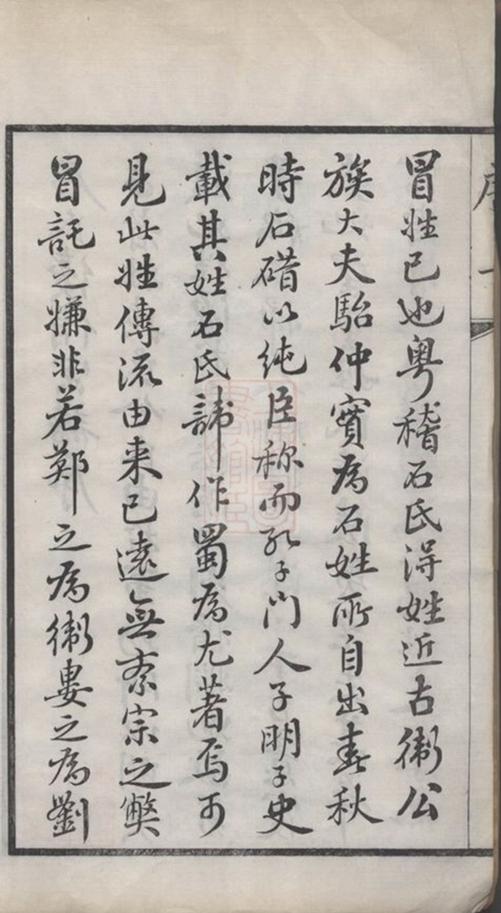 冒姓已也粤稽石氏得姓近古衛公
族大夫駘仲實為石姓所自出春秋
時石碏以純臣称而孔子門人子明子史
載其姓石氏諱作蜀為尤著焉可
見此姓傳流由来已遠無紊宗之弊
冒託之嫌非若鄭之為衛婁之為劉
序
一